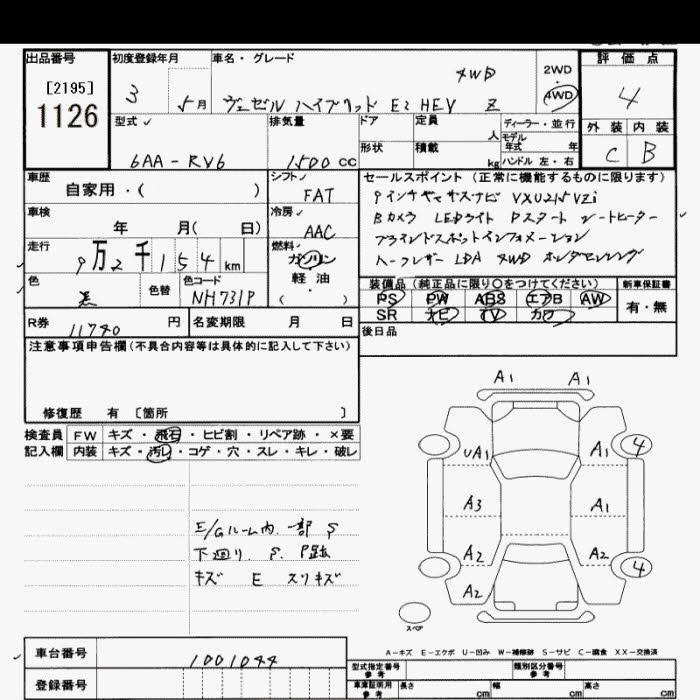 出品番号
[2195]
1126
初度登録年月
3 5月
車名・グレード
4WD
ヴェゼル ハイブリッド E2 HEV Z
2WD
・
4WD
評価点
4
外装 内装
C B
型式
6AA-RV6
排気量
1500 cc
ドア
形状
定員 人
積載 kg
ディーラー・並行
モデル年式 年
ハンドル 左・右
車歴
自家用・( )
シフト
FAT
車検
年 月( 日)
冷房
AAC
走行
9万2千154km
燃料
ガソリン
軽油
( )
色
黒
色替
色コード
NH731P
R券
11740円
名変期限 月 日
セールスポイント(正常に機能するものに限ります)
9インチギャザスナビ VXU215VZi
Bカメラ LEDライト Pスタート シートヒーター
ブラインドスポットインフォメーション
ハーフレザー LDA 4WD ホンダセンシング
装備品(純正品に限り○をつけてください)
新車保証書
PS PW ABS エアB AW
SR ナビ TV カワ
有・無
後日品
注意事項申告欄(不具合内容等は具体的に記入して下さい)
修復歴 有 〔箇所 〕
検査員記入欄
FW キズ・飛石・ヒビ割・リペア跡・×要
内装 キズ・汚れ・コゲ・穴・スレ・キレ・破レ
E/Gルーム内 一部 S
下廻り S. P跡
キズ E スリキズ
A1 A1
UA1 A1 4
A3 A1
A2 A2 4
A2
スペア
A-キズ E-エクボ U-凹み W-補修跡 S-サビ C-腐食 XX-交換済
車台番号
1001044
登録番号
型式指定番号 参考
類別区分番号 参考
車庫証明用 参考
長さ cm 幅 cm 高さ cm